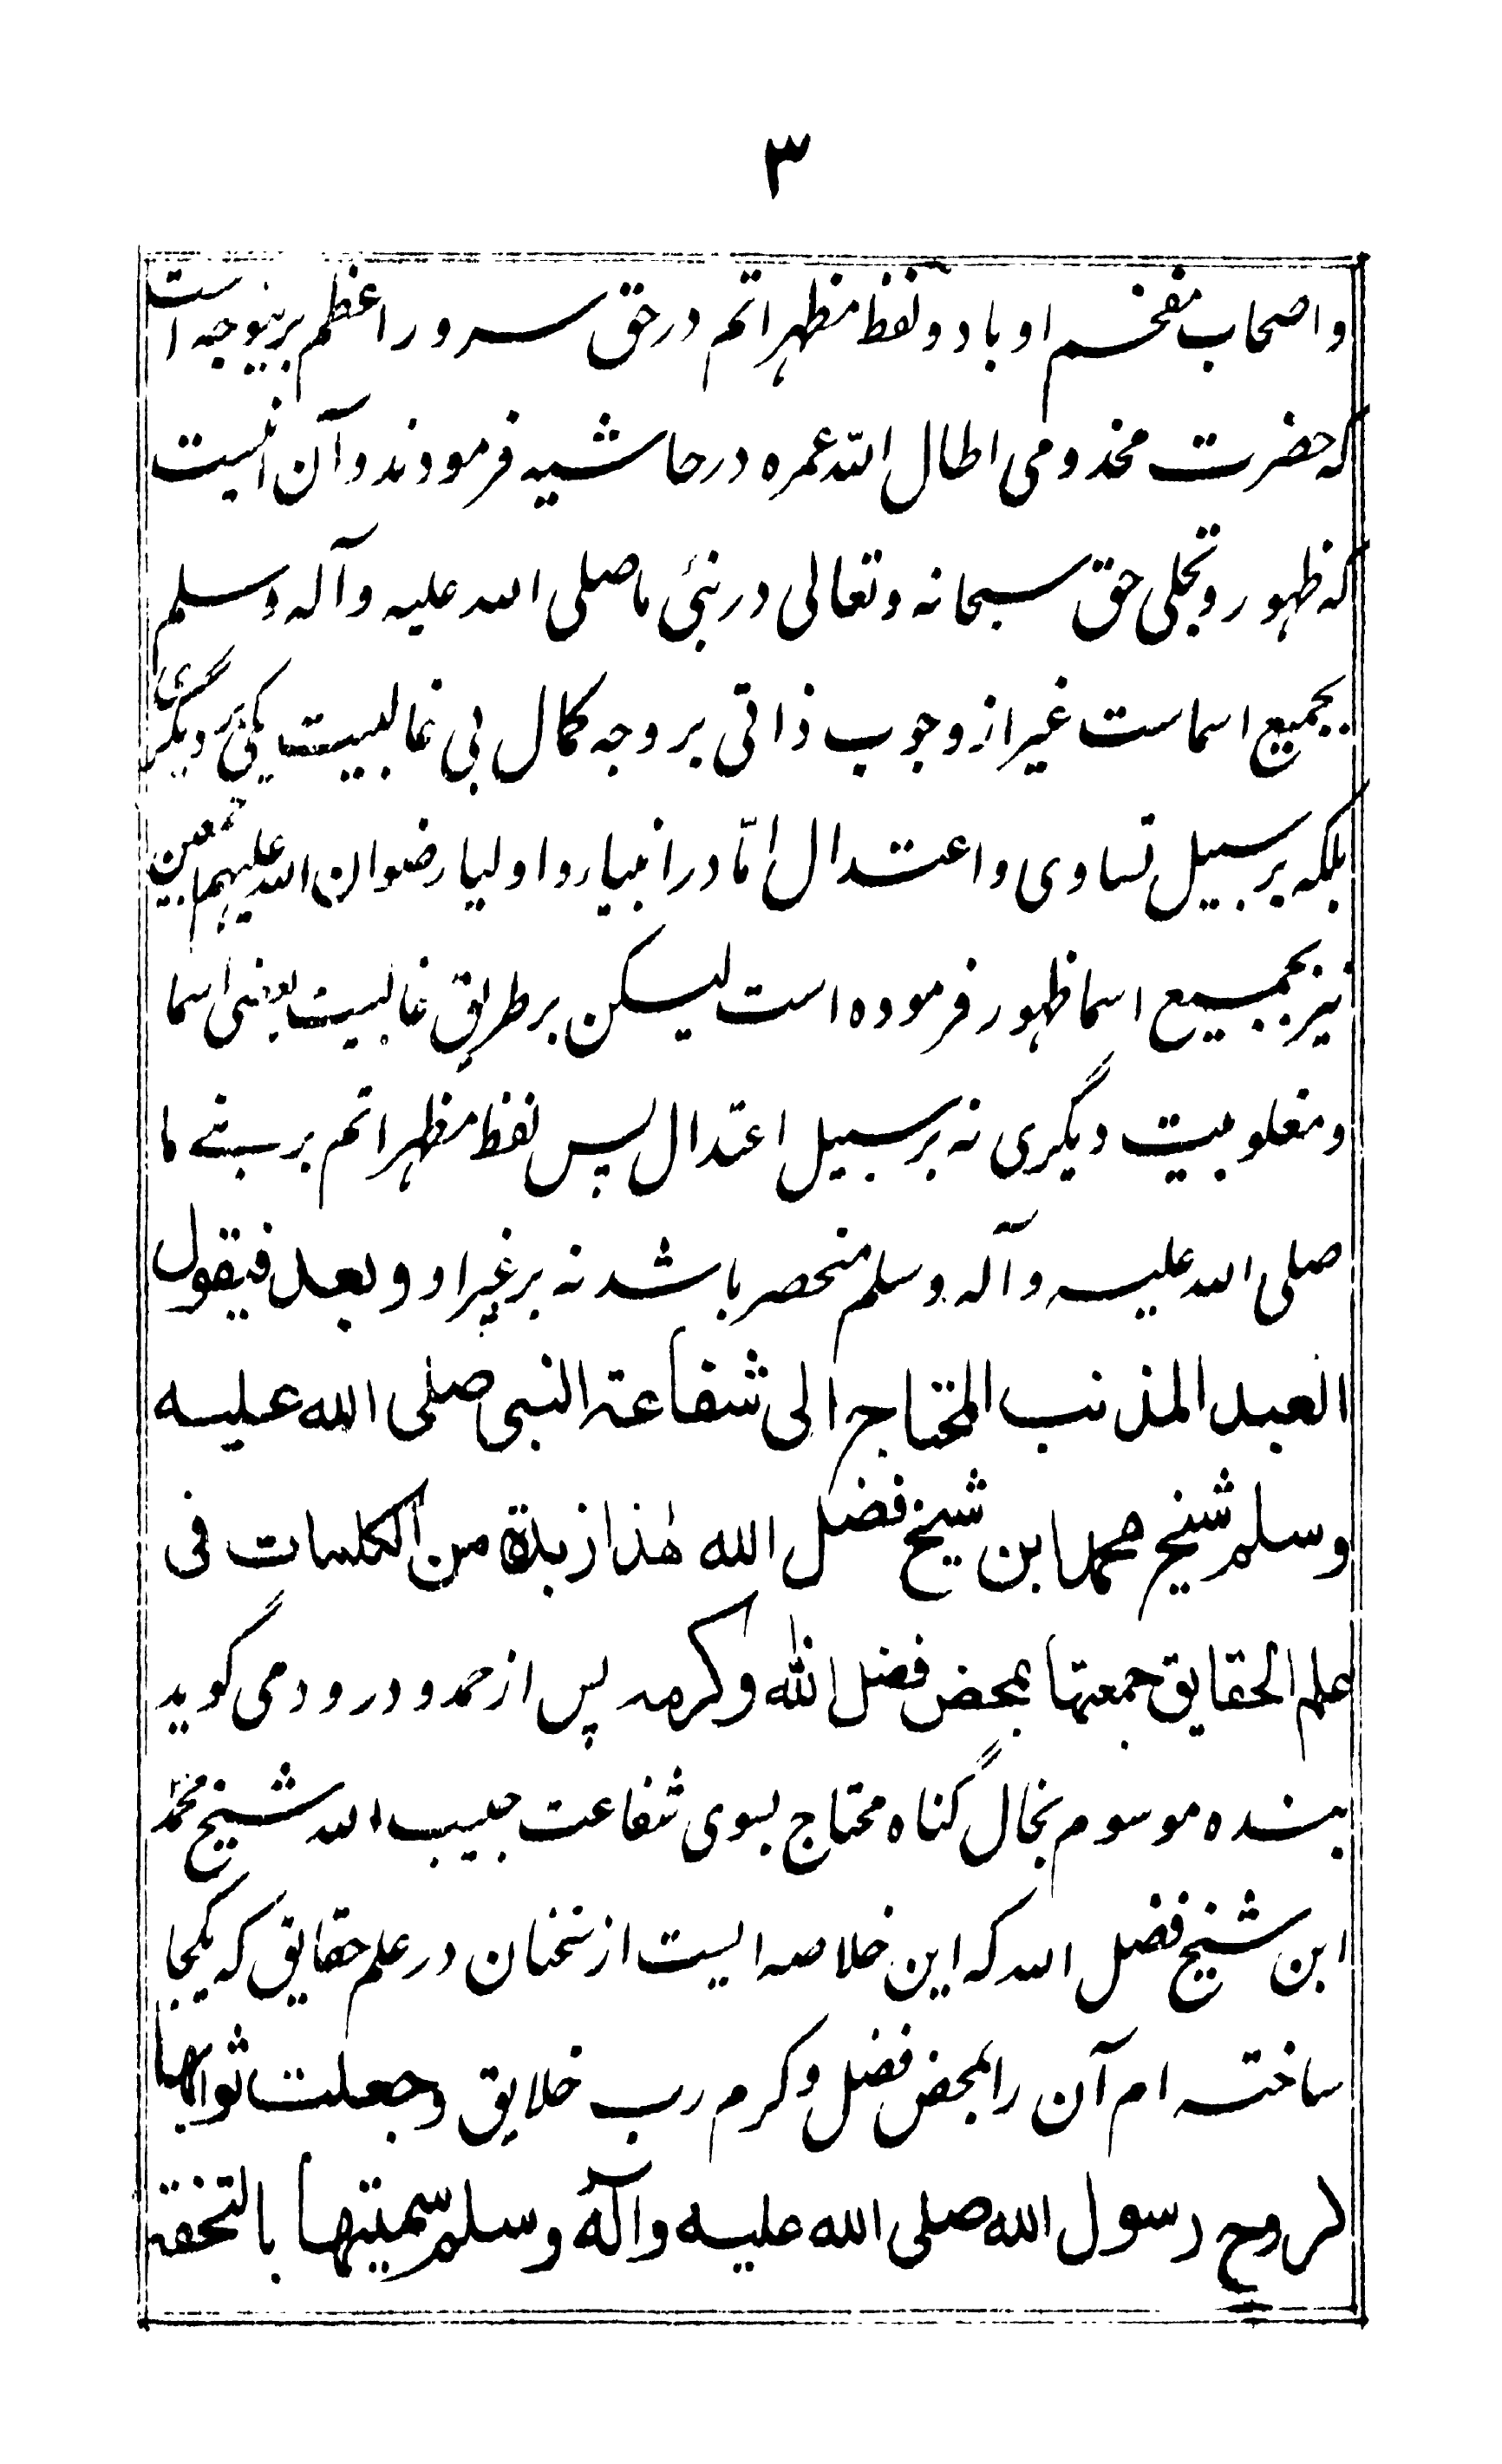 ۳
و اصحاب مفخم او باد و لفظ مظهر اتم در حق سرور اعظم برینوجه است
که حضرت مخدومی اطال الله عمره در حاشیه فرمودند و آن اینست
که ظهور و تجلی حق سبحانه و تعالی در نبی ما صلی الله علیه و آله و سلم
بجمیع اسماست غیر از وجوب ذاتی بر وجه کمال بی غالبیت یکی بر دیگری
بلکه بر سبیل تساوی و اعتدال امّا در انبیا و اولیا رضوان الله علیهم اجمعین
نیز بجمیع اسما ظهور فرموده است لیکن بر طریق غالبیت بعضی اسما
و مغلوبیت دیگری نه بر سبیل اعتدال پس لفظ مظهر اتم بر نبی ما
صلی الله علیه و آله و سلم منحصر باشد نه بر غیر او و بعد فیقول
العبد المذنب المحتاج الی شفاعة النبی صلی الله علیه
وسلم شیخ محمد ابن شیخ فضل الله هٰذا زبدة من الکلمات فی
علم الحقایق جمعتها بمحض فضل الله وکرمه پس از حمد و درود می گوید
بنده موسوم بخال گناه محتاج بسوی شفاعت حبیب الله شیخ محمّد
ابن شیخ فضل الله که این خلاصه ایست از سخنان در علم حقایق که یکجا
ساخته ام آن را بمحض فضل و کرم رب خلایق وجعلت ثوابها
لروح رسول الله صلی الله علیه وآله وسلم سمیتها بالتحفة